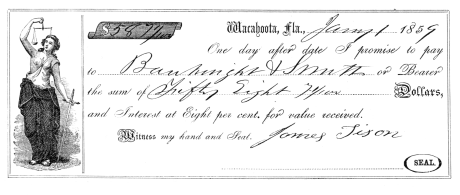 $58 7/100 Wacahoota, Fla., Jany 1 1859
One day after date I promise to pay
to Boulwright & Smith or Bearer
the sum of Fifty Eight 7/100 Dollars,
and Interest at Eight per cent. for value received.
Witness my hand and Seal. James Sison
SEAL